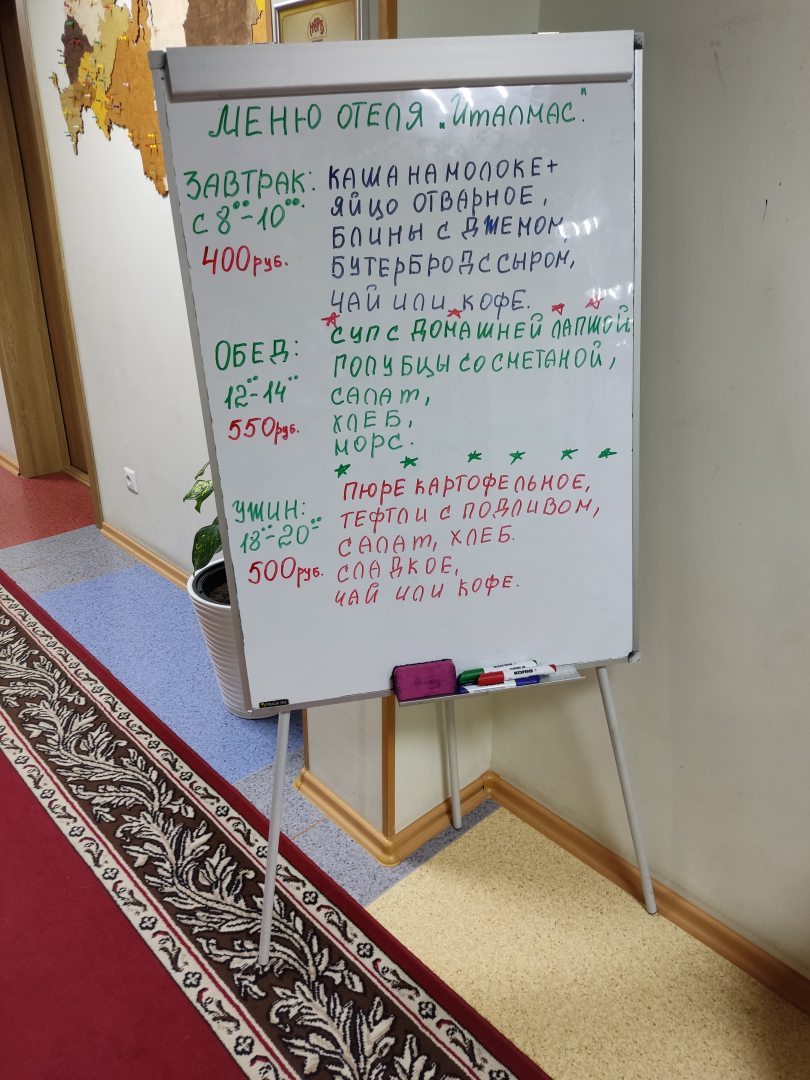 МЕНЮ ОТЕЛЯ „ИТАЛМАС".
ЗАВТРАК:
с 8⁰⁰-10⁰⁰.
400 руб.
КАША НА МОЛОКЕ+
ЯЙЦО ОТВАРНОЕ,
БЛИНЫ С ДЖЕМОМ,
БУТЕРБРОД С СЫРОМ,
ЧАЙ ИЛИ КОФЕ.
ОБЕД:
12⁰⁰-14⁰⁰
550 руб.
СУП С ДОМАШНЕЙ ЛАПШОЙ
ГОЛУБЦЫ СО СМЕТАНОЙ,
САЛАТ,
ХЛЕБ,
МОРС.
УЖИН:
18⁰⁰-20⁰⁰
500 руб.
ПЮРЕ КАРТОФЕЛЬНОЕ,
ТЕФТЛИ С ПОДЛИВОМ,
САЛАТ, ХЛЕБ.
СЛАДКОЕ,
ЧАЙ ИЛИ КОФЕ.
Kores